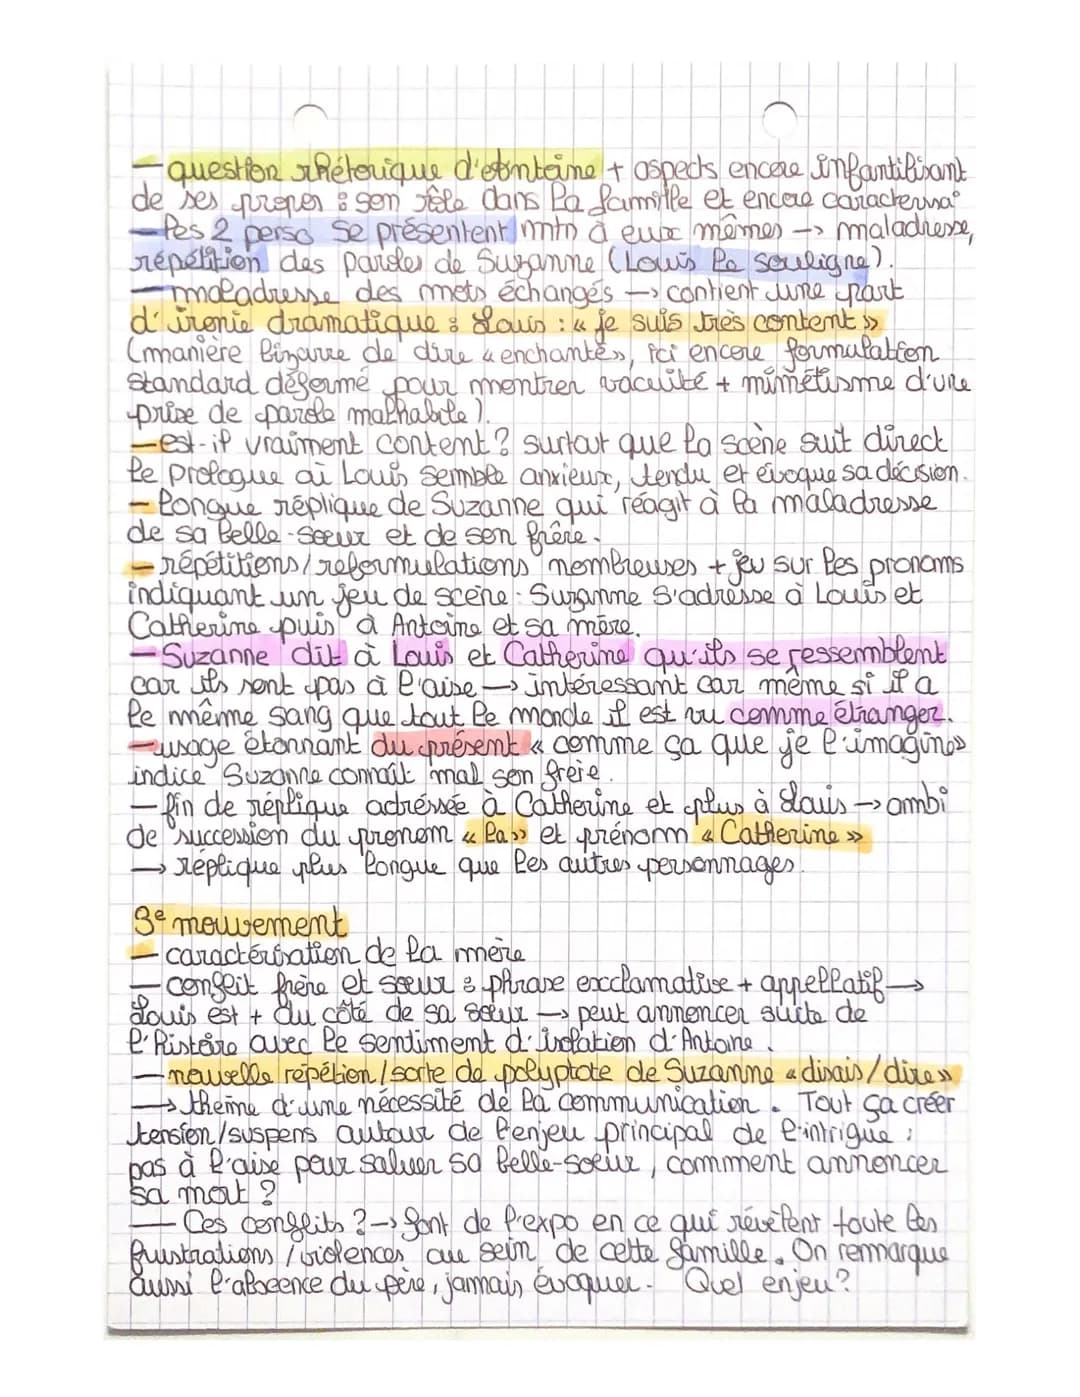 — question rhétorique d'Antoine + aspects encore infantilisant
de ses propos : son rôle dans la famille et encore
— les 2 perso se présentent mtn à eux mêmes → maladresse,
répétition des paroles de Suzanne (Louis le souligne).
— maladresse des mots échangés → contient une part
d'ironie dramatique : Louis : « je suis très content »
(manière bizarre de dire « enchanté », ici encore formulation
standard déformé pour montrer vacuité + mimétisme d'une
prise de parole malhabile).
— est-il vraiment content ? surtout que la scène suit direct
le prologue où Louis semble anxieux, tendu et évoque sa décision.
— longue réplique de Suzanne qui réagit à la maladresse
de sa belle-soeur et de son frère.
— répétitions/reformulations nombreuses + jeu sur les pronoms
indiquant un jeu de scène : Suzanne s'adresse à Louis et
Catherine puis à Antoine et sa mère.
— Suzanne dit à Louis et Catherine qu'ils se ressemblent
car ils sont pas à l'aise → intéressant car même si il a
le même sang que tout le monde il est vu comme étranger.
— usage étonnant du présent « comme ça que je l'imagine»
indice Suzanne connaît mal son frère.
— fin de réplique adréssée à Catherine et plus à Louis → ambi
de succession du pronom « la » et prénom « Catherine »
→ réplique plus longue que les autres personnages.
3e mouvement
— caractérisation de la mère
— conflit frère et soeur : phrase exclamative + appellatif →
Louis est + du côté de sa soeur → peut annoncer suite de
l'histoire avec le sentiment d'isolation d'Antoine.
— nouvelle répétion/sorte de polyptote de Suzanne « disais/dire»
→ theme d'une nécessité de la communication. Tout ça créer
tension/suspens autour de l'enjeu principal de l'intrigue :
pas à l'aise pour saluer sa belle-soeur, comment annoncer
sa mort ?
— Ces conflits ? → font de l'expo en ce qui révèlent toute les
frustrations / violences au sein de cette famille. On remarque
aussi l'absence du père, jamais évoquer. Quel enjeu ?